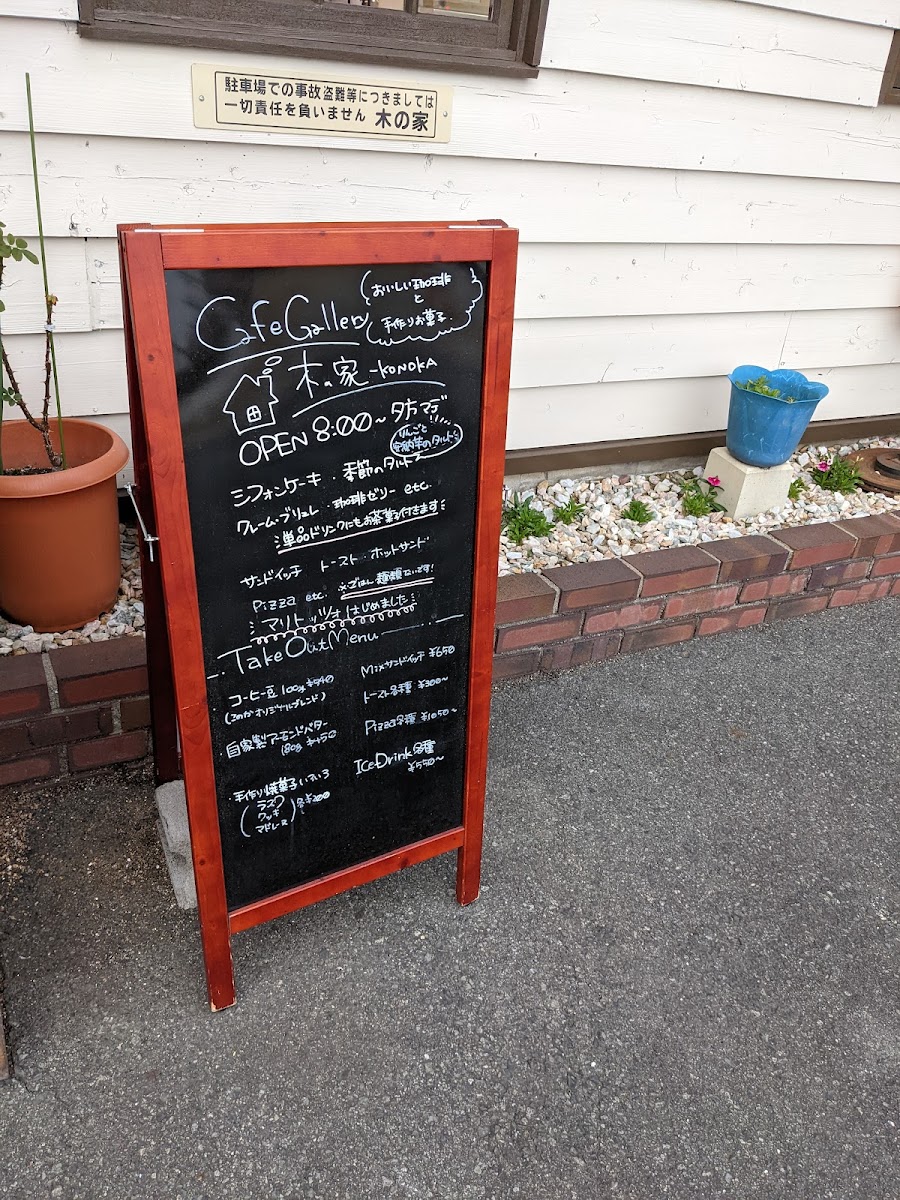 駐車場での事故盗難等につきましては
一切責任を負いません 木の家
Cafe Gallery
おいしい珈琲
と
手作りお菓子
木の家 -KONOKA
OPEN 8:00~ 夕方マデ
りんごと
安納芋のタルト
シフォンケーキ ・ 季節のタルト
クレーム・ブリュレ ・ 珈琲ゼリー etc.
単品ドリンクにもお茶菓子付きます
サンドイッチ トースト ホットサンド
Pizza etc. ※ごはん 麺類ないです!
マリトッツオ はじめました
Take Out Menu
・コーヒー豆 100g ¥540
(このかオリジナルブレンド)
・自家製アーモンドバター
180g ¥450
・手作り焼菓子いろいろ
ラスク
クッキー
マドレーヌ
各¥200
Mixサンドイッチ ¥650
トースト各種 ¥300~
Pizza各種 ¥1050~
Ice Drink各種
¥550~